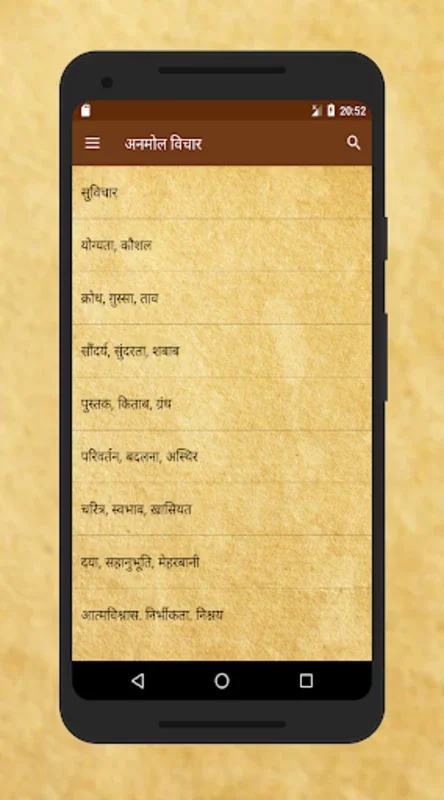 20:52
अनमोल विचार
सुविचार
योग्यता, कौशल
क्रोध, ग़ुस्सा, ताव
सौंदर्य, सुंदरता, शबाब
पुस्तक, किताब, ग्रंथ
परिवर्तन, बदलना, अस्थिर
चरित्र, स्वभाव, ख़ासियत
दया, सहानुभूति, मेहरबानी
आत्मविश्वास, निर्भीकता, निश्चय